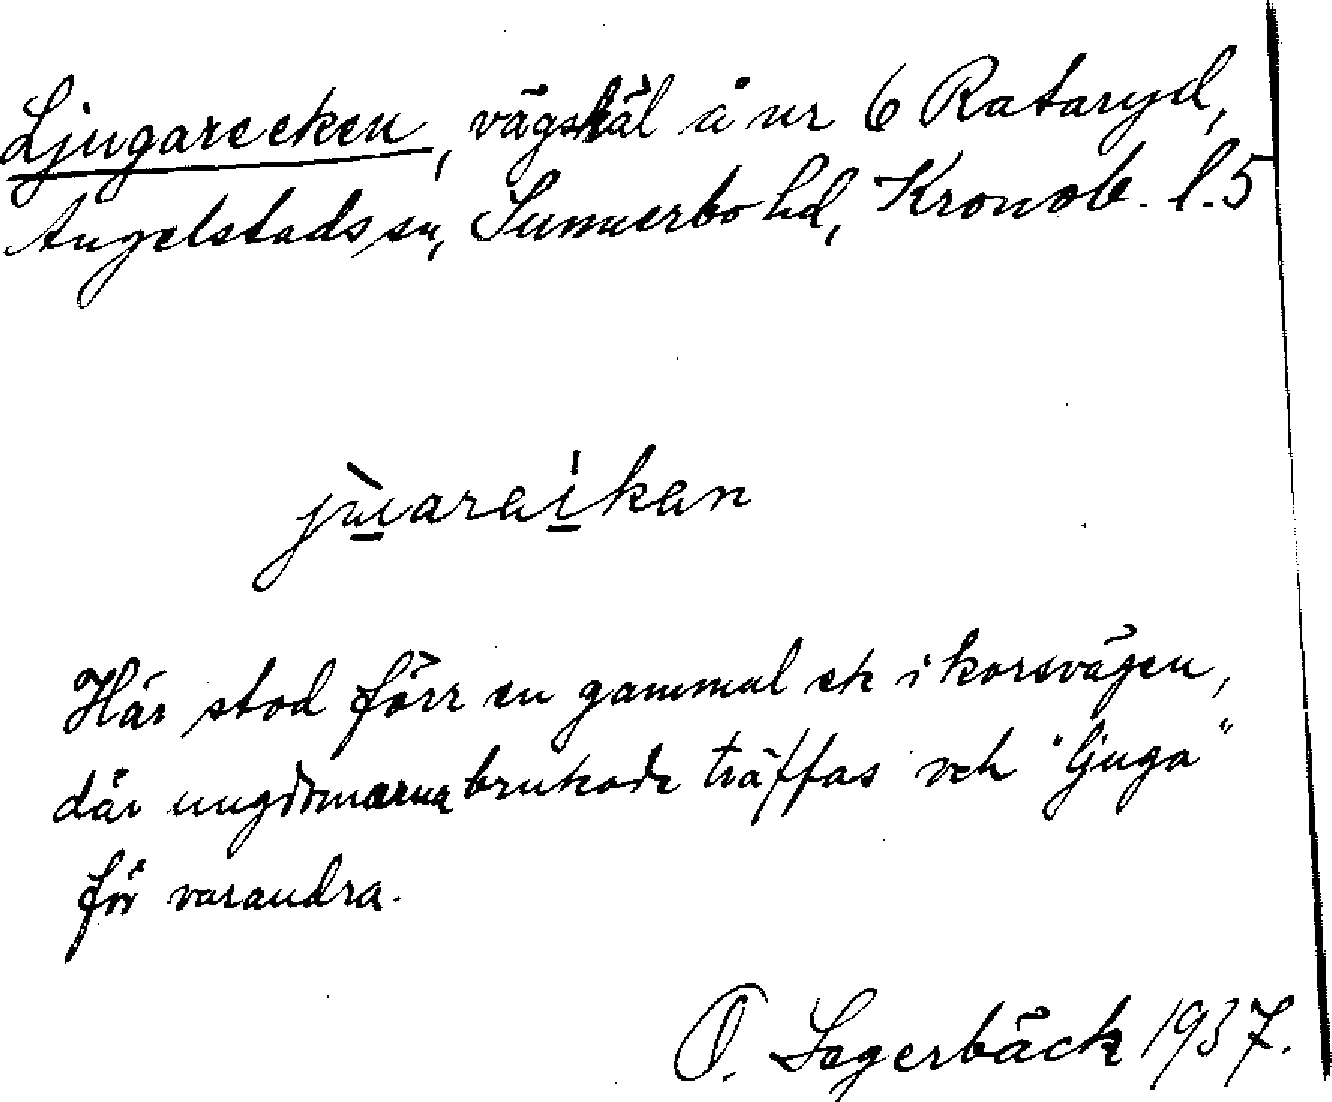 Ljugareeken, vägskäl å nr 6 Rataryd,
Angelstads sn, Sunnerbo hd, Kronob. l. 5
jùaraíkan
Här stod förr en gammal ek i korsvägen,
där ungdomarna brukade träffas och "ljuga"
för varandra.
O. Lagerbäck 1937.